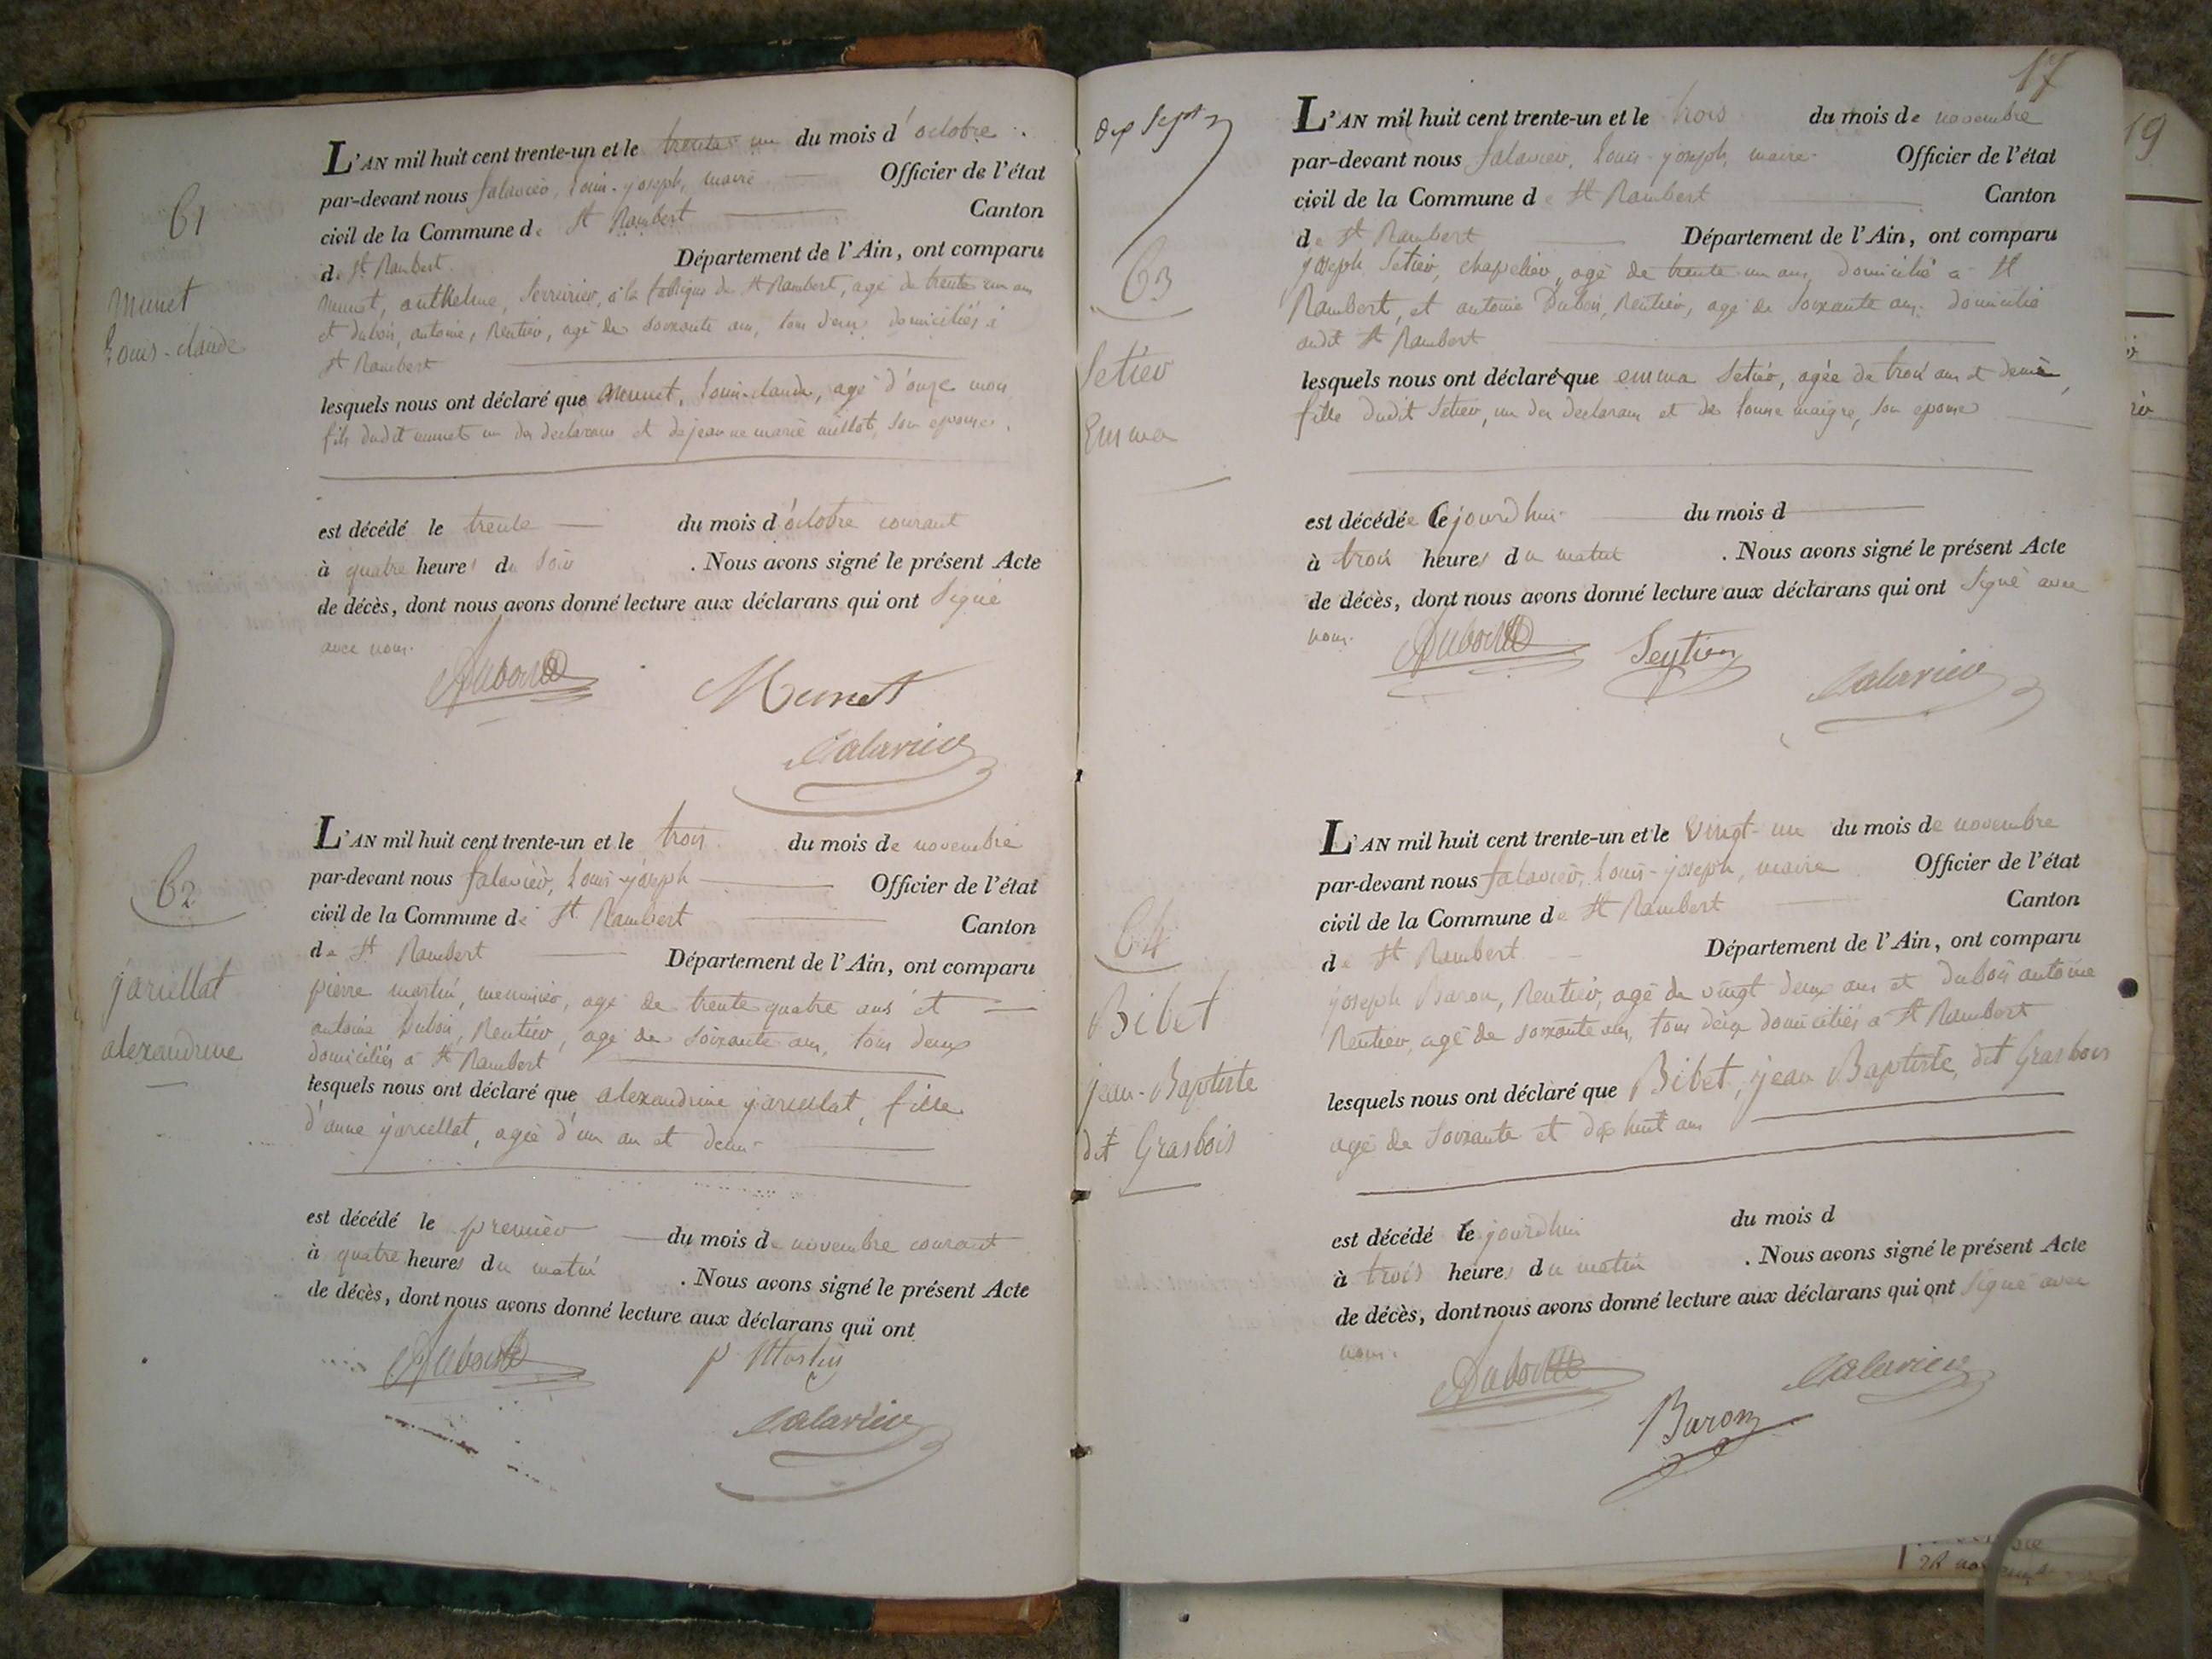 61
Munet
Louis-claude
L'AN mil huit cent trente-un et le trente un du mois d'octobre
par-devant nous falavier, Louis-joseph, maire Officier de l'état
civil de la Commune de St Rambert Canton
de St Rambert Département de l'Ain, ont comparu
Munet, anthelme, serrurier, à la fabrique de St Rambert, agé de trente un ans
et dubois, antoine, Rentier, agé de soixante ans, tous deux domiciliés à
St Rambert
lesquels nous ont déclaré que Munet, Louis-claude, agé d'onze mois
fils dudit munet un des declarans et de jeanne marie millot, son epouse.
est décédé le trente du mois d'octobre courant
à quatre heures du soir . Nous avons signé le présent Acte
de décès, dont nous avons donné lecture aux déclarans qui ont signé
avec nous.
Dubois Munet
falavier
62
jarcellat
alexandrine
L'AN mil huit cent trente-un et le trois du mois de novembre
par-devant nous falavier, Louis-joseph Officier de l'état
civil de la Commune de St Rambert Canton
de St Rambert Département de l'Ain, ont comparu
pierre martin, menuisier, agé de trente quatre ans et
antoine Dubois, Rentier, agé de soixante ans, tous deux
domiciliés à St Rambert
lesquels nous ont déclaré que alexandrine jarcellat, fille
d'anne jarcellat, agée d'un an et demi
est décédé le premier du mois de novembre courant
à quatre heures du matin . Nous avons signé le présent Acte
de décès, dont nous avons donné lecture aux déclarans qui ont
Dubois p Martin
falavier
17
19
dix Sept
63
Setier
Emma
L'AN mil huit cent trente-un et le trois du mois de novembre
par-devant nous falavier, Louis-joseph, maire Officier de l'état
civil de la Commune de St Rambert Canton
de St Rambert Département de l'Ain, ont comparu
joseph Setier, chapelier, agé de trente un ans, domicilié à St
Rambert, et antoine Dubois, Rentier, agé de soixante ans, domicilié
audit St Rambert
lesquels nous ont déclaré que emma Setier, agée de trois ans et demie,
fille dudit Setier, un des declarans et de Louise maigre, son epouse
est décédée cejourd'hui du mois d
à trois heures du matin . Nous avons signé le présent Acte
de décès, dont nous avons donné lecture aux déclarans qui ont signé avec
nous.
Dubois Seytier falavier
64
Bibet
jean-Baptiste
dit Grasbois
L'AN mil huit cent trente-un et le vingt-un du mois de novembre
par-devant nous falavier, Louis-joseph, maire Officier de l'état
civil de la Commune de St Rambert Canton
de St Rambert Département de l'Ain, ont comparu
joseph Baron, Rentier, agé de vingt deux ans et dubois antoine
Rentier, agé de soixante ans, tous deux domiciliés à St Rambert
lesquels nous ont déclaré que Bibet, jean Baptiste, dit Grasbois
agé de soixante et dix huit ans
est décédé cejourd'hui du mois d
à trois heures du matin . Nous avons signé le présent Acte
de décès, dont nous avons donné lecture aux déclarans qui ont signé avec
nous.
Dubois falavier
Baron